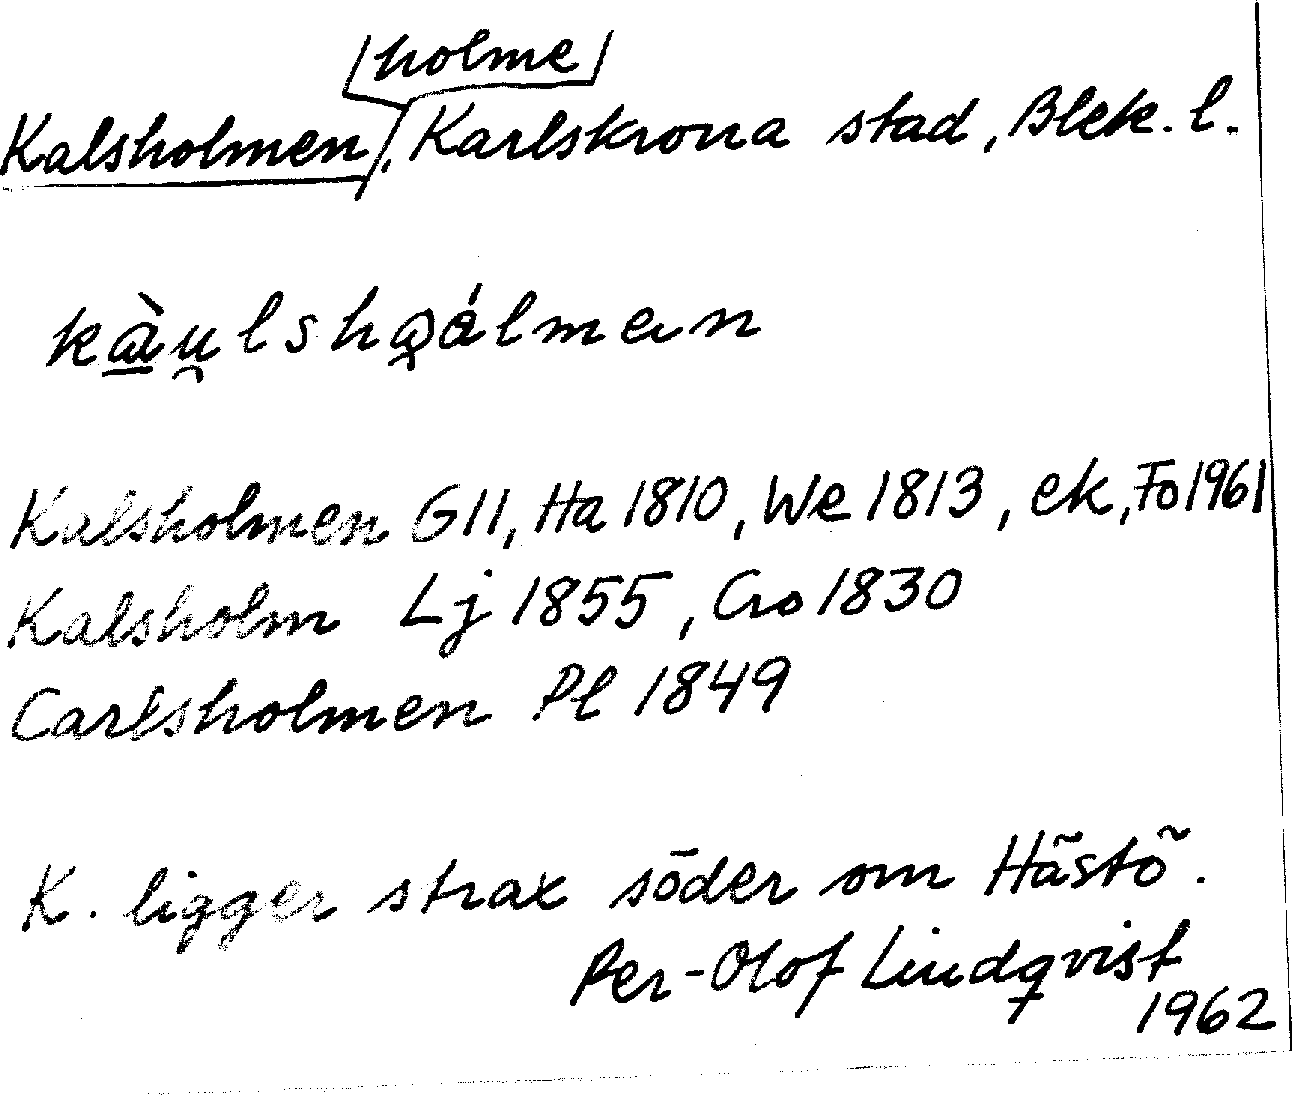 holme
Kalsholmen, Karlskrona stad, Blek. l.
Kalsholmen G11, Ha 1810, We 1813, ek, Fo 1961
Kalsholm Lj 1855, Cro 1830
Carlsholmen Pl 1849
K. ligger strax söder om Hästö.
Per-Olof Lindqvist
1962